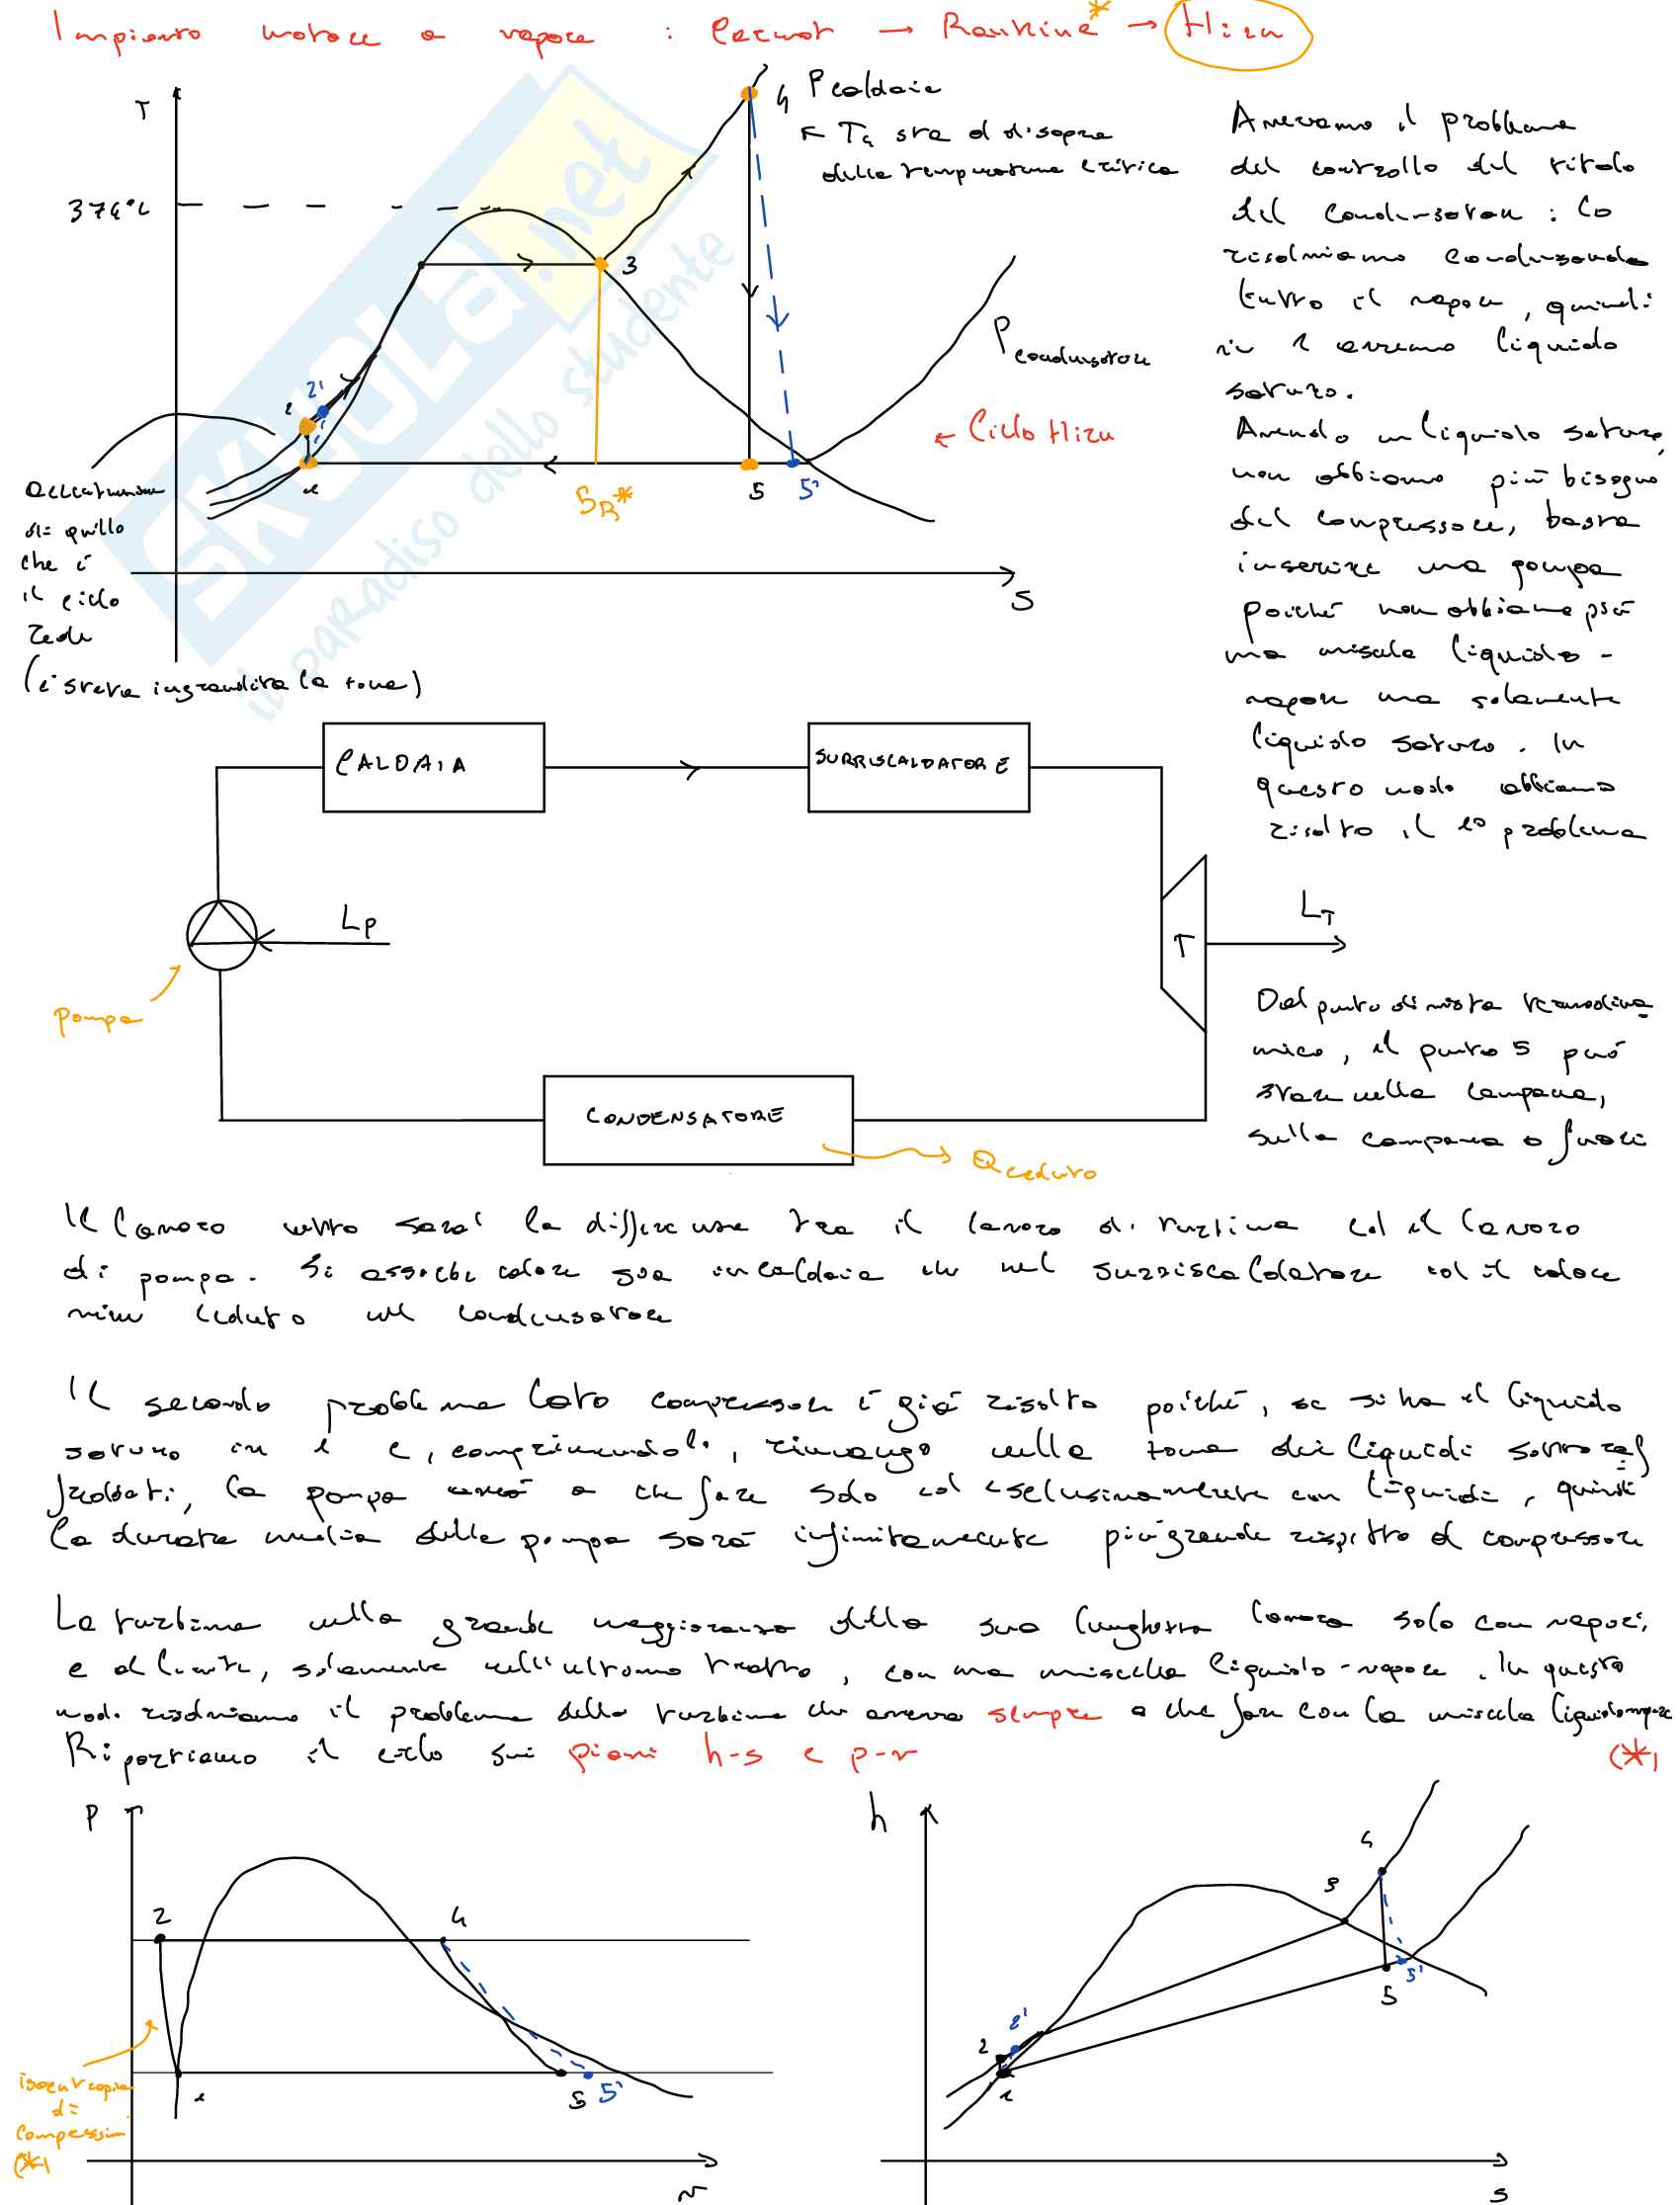 Impianto motore a vapore : Carnot → Rankine* → Hirn
T
4 Pcaldaia
← T4 sta al di sopra
della temperatura critica
374°C
3
Pcondensatore
← Ciclo Hirn
2 2'
1
5R*
5 5'
S
di quello
che è
il ciclo
reale
(si stava ingrandita la zona)
Avevamo il problema
del controllo del titolo
del condensatore : lo
risolviamo condensando
tutto il vapore, quindi
in 1 avremo liquido
saturo.
Avendo un liquido saturo,
non abbiamo più bisogno
del compressore, basta
inserire una pompa
poiché non abbiamo più
una miscela liquido-
vapore ma solamente
liquido saturo. In
questo modo abbiamo
risolto il 1° problema
CALDAIA
SURRISCALDATORE
LP
Pompa
T
LT
CONDENSATORE
Qceduto
Dal punto di vista termodina
mico, il punto 5 può
stare nella campana,
sulla campana o fuori
Il lavoro netto sarà la differenza tra il lavoro di turbina ed il lavoro
di pompa. Si assorbe calore sia in caldaia che nel surriscaldatore ed il calore
viene ceduto nel condensatore
Il secondo problema lato compressore è già risolto poiché, se si ha il liquido
saturo in 1 e, comprimendolo, rimango nella zona dei liquidi sottoraf
freddati, la pompa avrà a che fare solo ed esclusivamente con liquidi, quindi
la durata media della pompa sarà infinitamente più grande rispetto al compressore
La turbina nella grande maggioranza della sua lunghezza lavora solo con vapori,
e al limite, solamente nell'ultimo tratto, con una miscela liquido-vapore. In questo
modo risolviamo il problema della turbina che aveva sempre a che fare con la miscela liquidovapore
Riportiamo il ciclo sui piani h-s e p-v
(*)
P
2
4
1
5 5'
isoentropica
di
compressione
(*)
v
h
4
3
2 2'
1
5 5'
s
SKUOLA.net
il paradiso dello studente